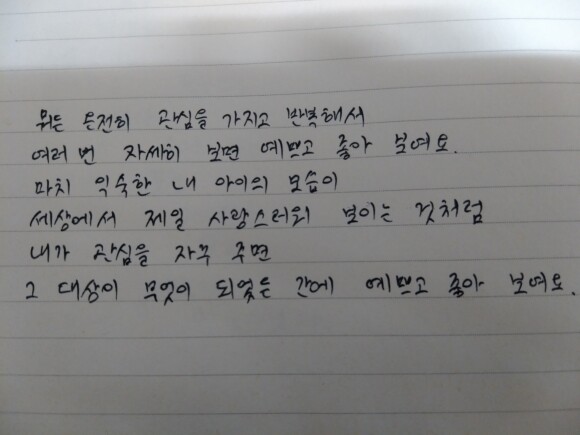 뭐든 온전히 관심을 가지고 반복해서
여러번 자세히 보면 예쁘고 좋아 보여요.
마치 익숙한 내 아이의 모습이
세상에서 제일 사랑스러워 보이는 것처럼
내가 관심을 자꾸 주면
그 대상이 무엇이 되었든 간에 예쁘고 좋아 보여요.